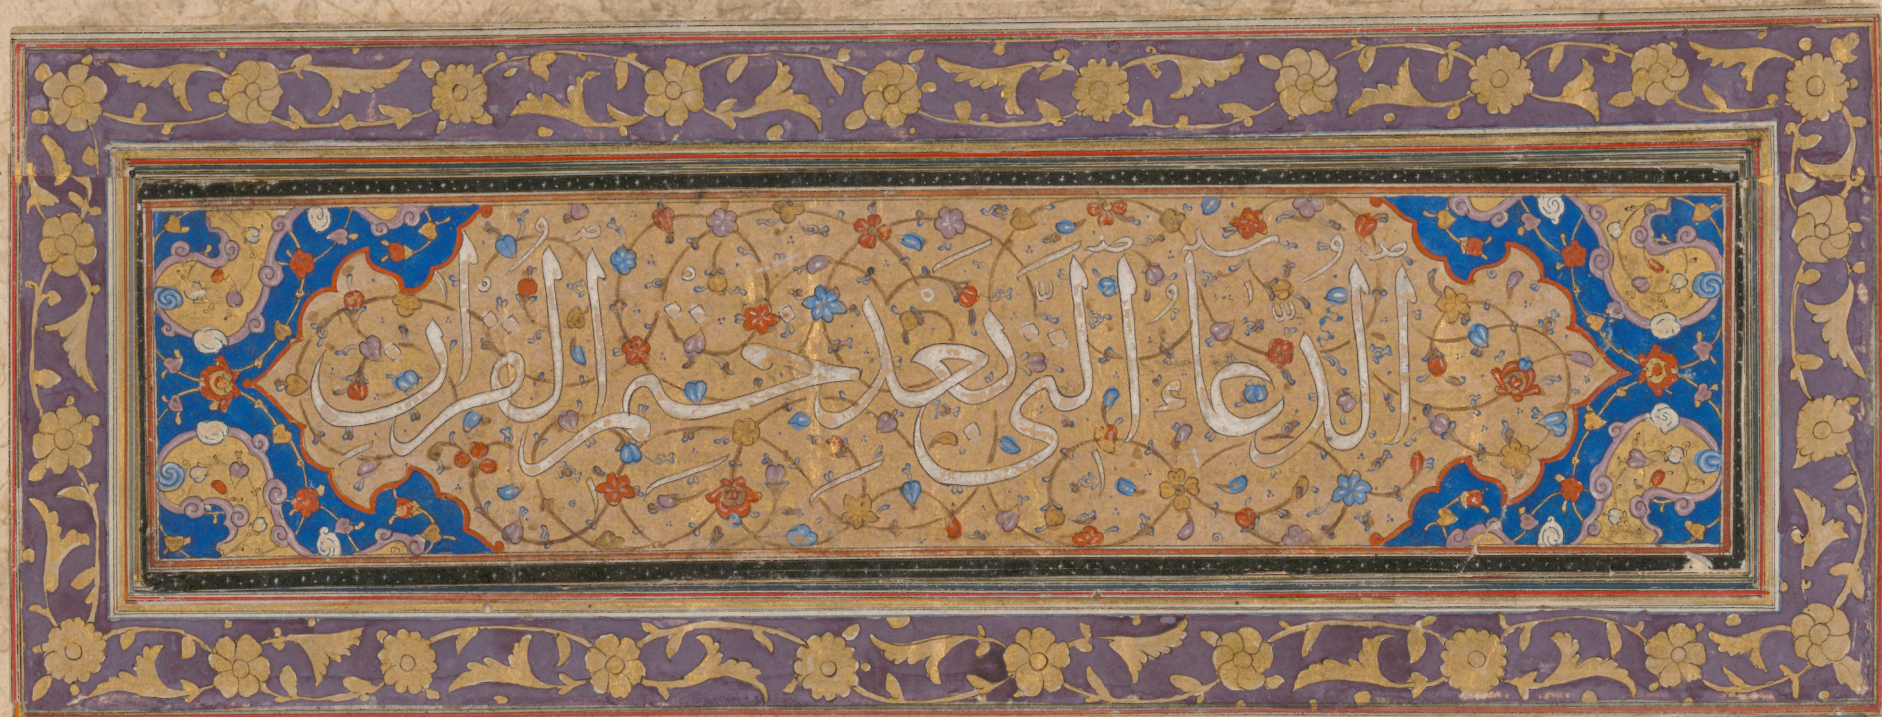 الدُّعَاءُ الَّتی بَعْدَ خَتْمِ الْقُرْاٰنِ